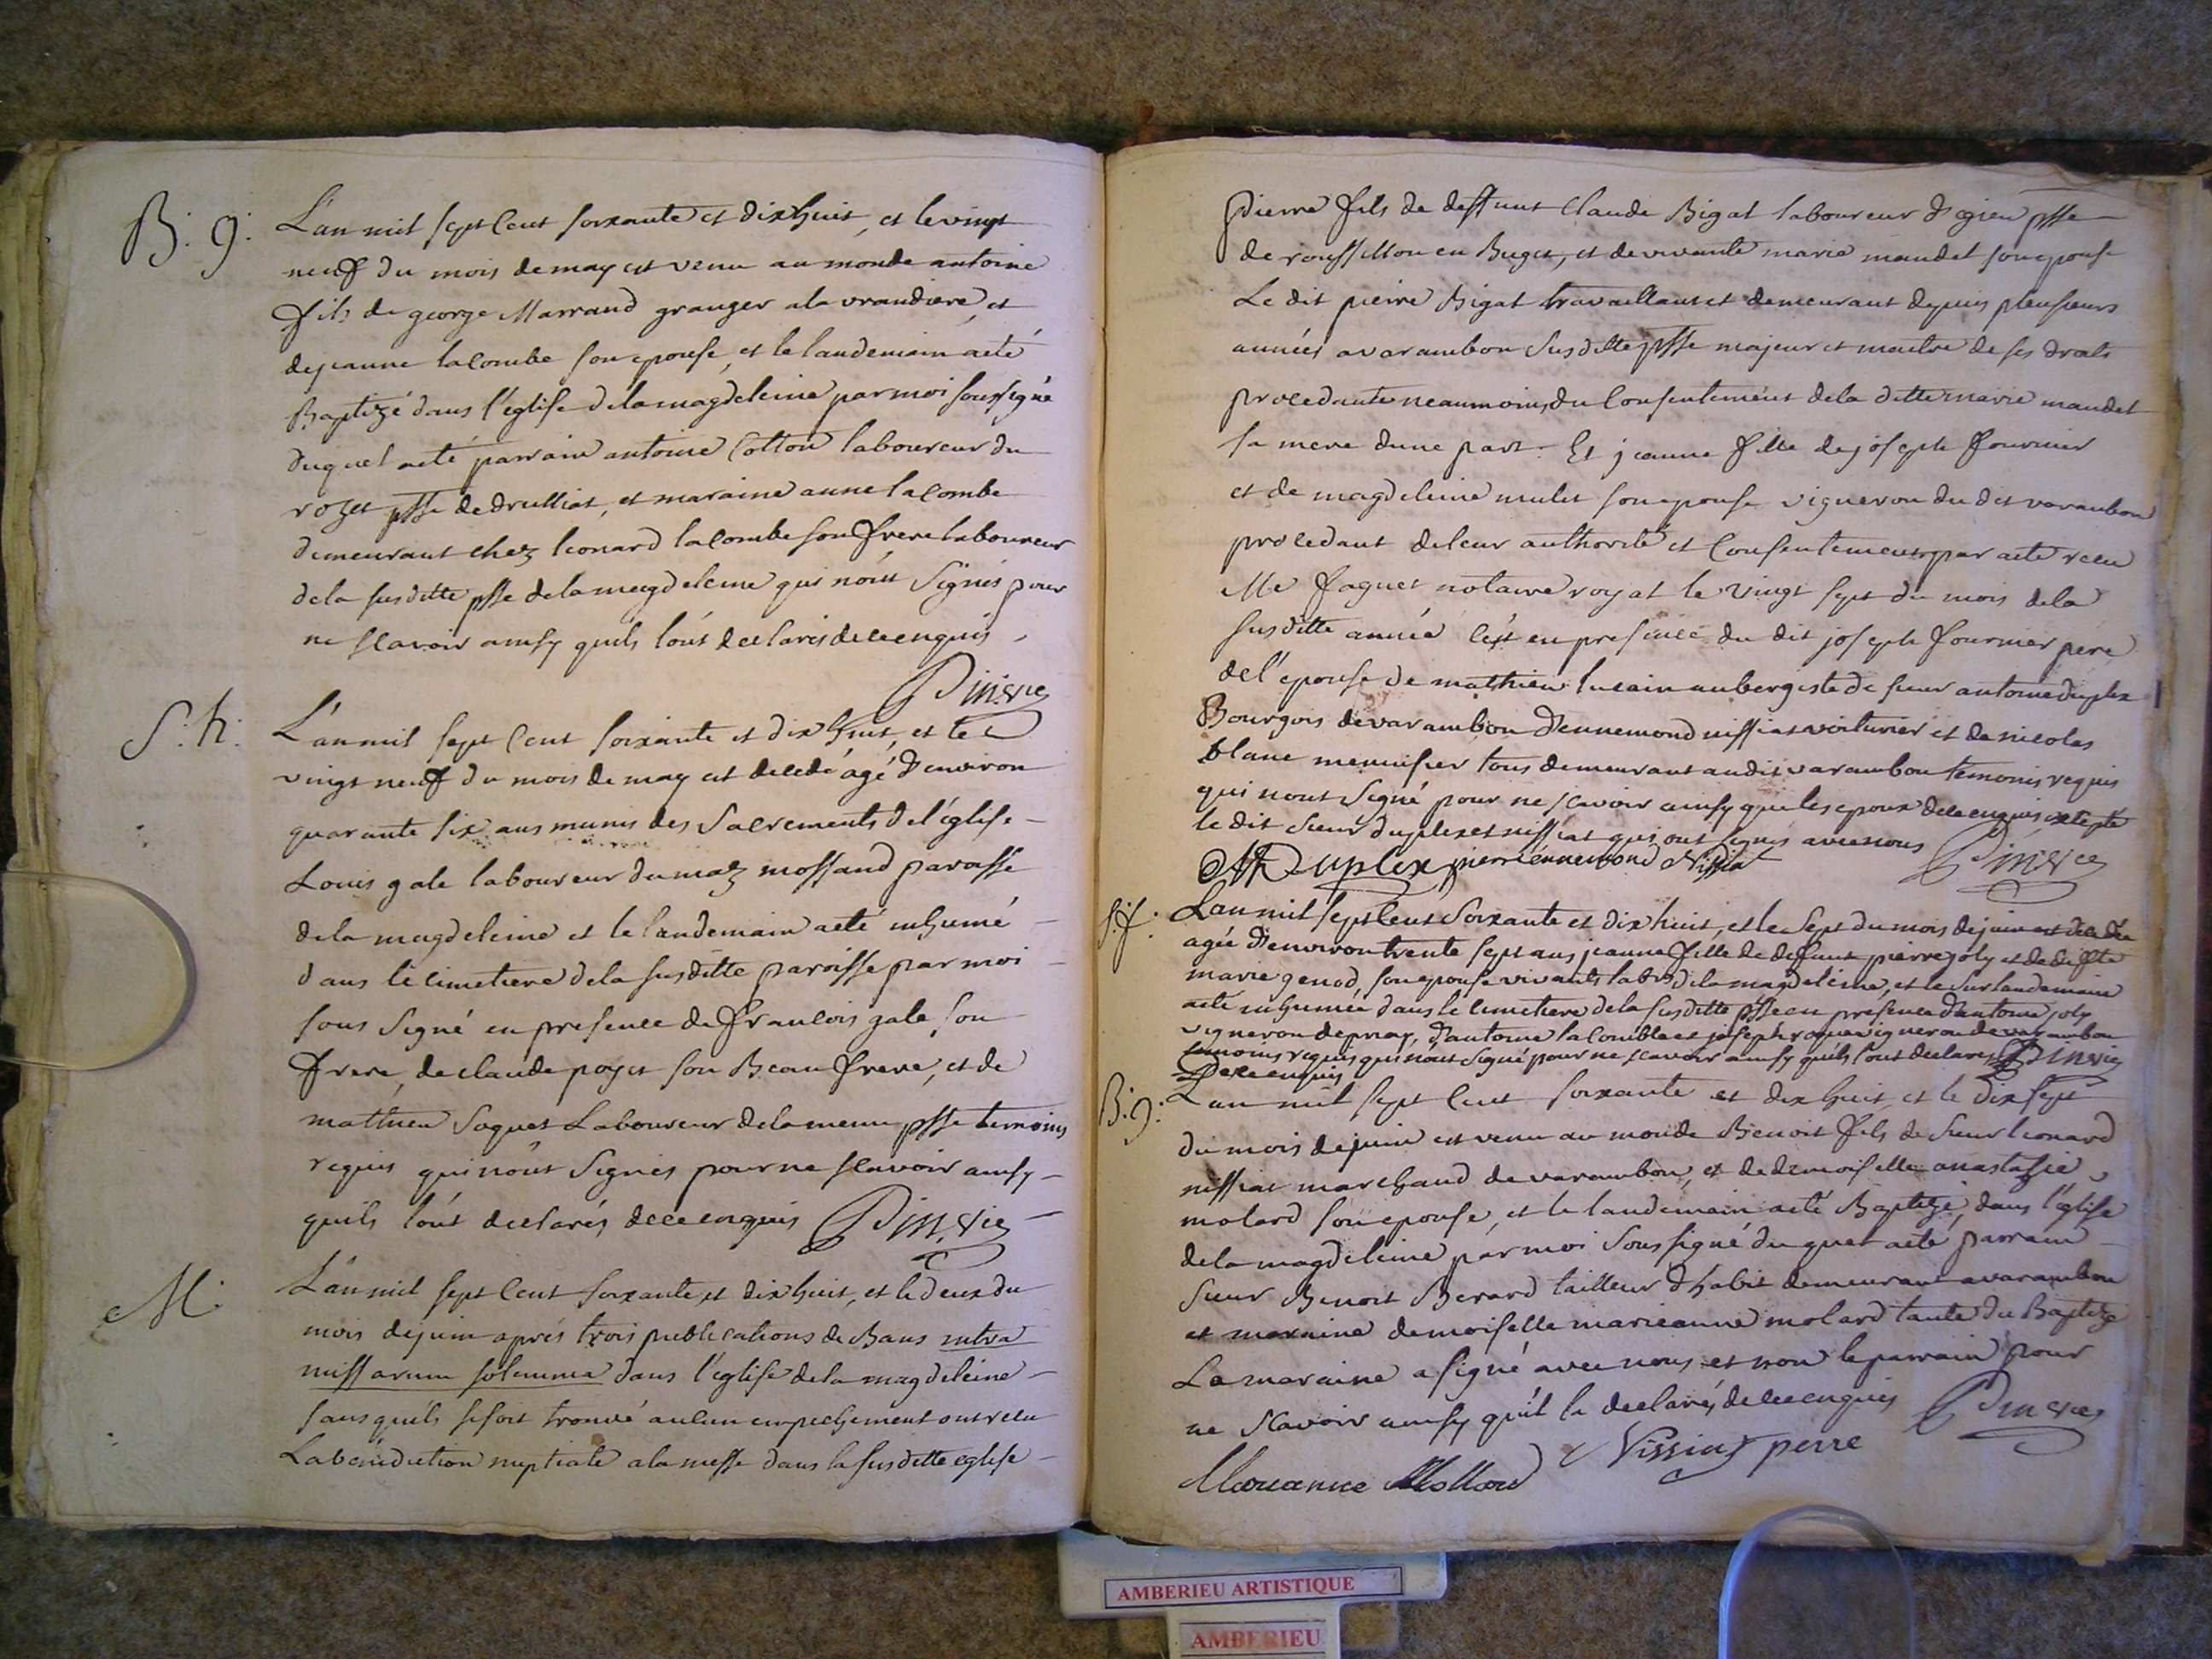 B: g:
L'an mil sept Cent soixante et dix huit, et le vingt
neuf du mois de may est venu au monde antoine
fils de george Marraud granger a la vrandiere, et
de jeanne lacombe son epouse, et le landemain a eté
Baptizé dans l'eglise de la magdeleine par moi soussigné
duquel a eté parrain antoine Cotton laboureur du
rozet psse de drulliat, et maraine anne lacombe
demeurant chez leonard lacombe son frere laboureur
de la susditte psse de la magdeleine qui n'ont Signés pour
ne scavoir ainsy quils l'ont declarés de ce enquis
S. h.
L'an mil sept Cent soixante et dix huit, et le
vingt neuf du mois de may est decedé agé d'environ
quarante six ans munis des Sacrements de l'église
Louis gale laboureur du maz mossand paroisse
de la magdeleine et le landemain a eté inhumé
dans le cimetiere de la susditte paroisse par moi
sous Signé en presence de francois gale son
frere, de claude poyet son Beau frere, et de
mathieu Saquet Laboureur de la meme psse temoins
requis qui n'ont Signés pour ne scavoir ainsy
quils l'ont declarés de ce enquis
M.
L'an mil sept Cent soixante et dix huit, et le deux du
mois de juin aprés trois publications de Bans intra
missarum solemnia dans l'eglise de la magdeleine
sans quils se soit trouvé aucun empechement ont recu
La bénédiction nuptiale a la messe dans la susditte eglise
Pierre fils de deffunt Claude Bigat laboureur d'ogieu psse
de roussillon en Buget, et de vivante marie mandet son epouse
Le dit pierre Bigat travaillant et demeurant depuis pleusieurs
années a varambon susditte psse majeur et maitre de ses droits
procedante neaumoins du Consentement de la ditte marie mandet
sa mere dune part. Et jeanne fille de joseph fournier
et de magdeleine mulet son epouse vigneron du dit varambon
procedant de leur authorité et Consentement par acte recu
Me faguet notaire royal le vingt sept du mois de la
susditte année c'est en presence du dit joseph fournier pere
de l'epouse de mathieu lucain aubergiste de sieur antoine duplex
Bourgois de varambon d'ennemond nissiat voiturier et de nicolas
blanc menuisier tous demeurant audit varambon temoins requis
qui n'ont Signé pour ne scavoir ainsy que les epoux de ce enquis excepté
le dit Sieur duplex et nissiat qui ont signés avec nous
Duplex pierre ennemond Nissiat
S. f.
L'an mil sept Cent Soixante et dix huit, et le Sept du mois de juin est decedée
agée d'environ trente sept ans jeanne fille de defunt pierre joly et de deffte
marie genod, son epouse vivants labrs de la magdeleine, et le surlandemain
a eté inhumée dans le cimetiere de la susditte psse en presence d'antoine joly
vigneron de priay, d'antoine lacombe et joseph vigneron de varambon
temoins requis qui n'ont signé pour ne scavoir ainsy quils l'ont declarés
de ce enquis
B. g:
L'an mil sept Cent soixante et dix huit, et le Dix sept
du mois de juin est venu au monde Benoit fils de Sieur leonard
nissiat marchand de varambon, et de demoiselle anastasie
molard son epouse, et le landemain a eté Baptizé, dans l'eglise
de la magdeleine par moi Sous signé du quel a eté parrain
Sieur Benoit Berard tailleur d'habit demeurant a varambon
et maraine demoiselle marieanne molard tante du Baptizé
La maraine a signé avec nous et non le parrain pour
ne Scavoir ainsy qu'il la declarés de ce enquis
Marianne Mollard
Nissiat perre
AMBERIEU ARTISTIQUE
AMBERIEU